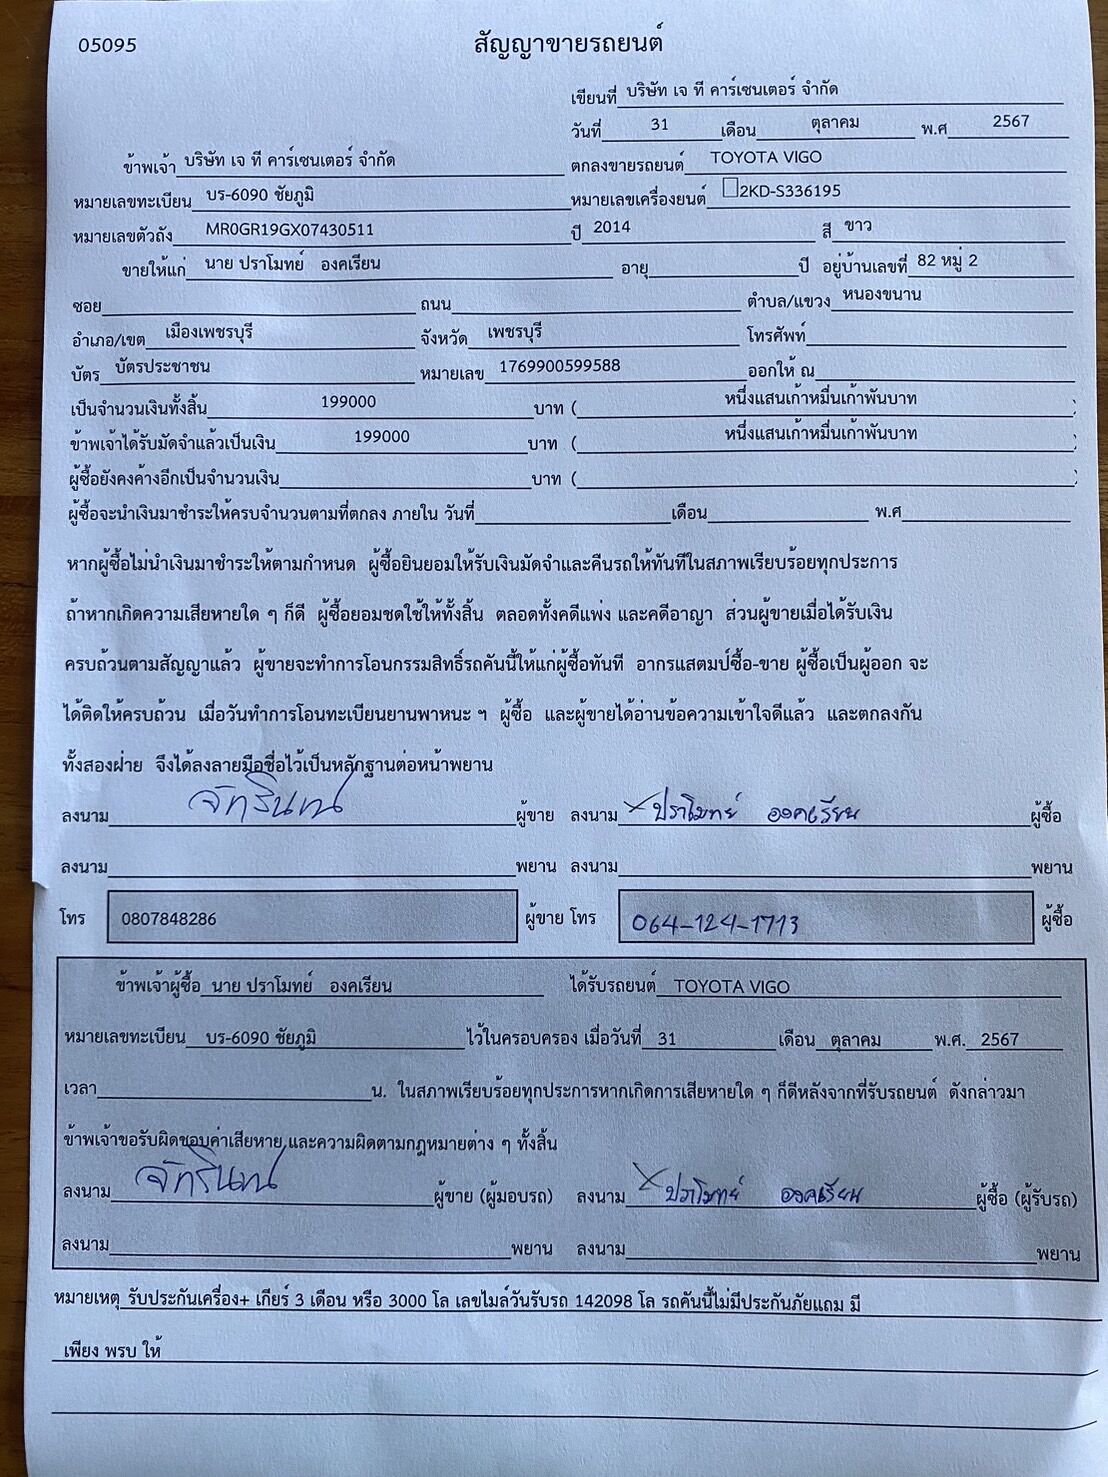 05095
สัญญาขายรถยนต์
เขียนที่ บริษัท เจ ที คาร์เซนเตอร์ จำกัด
วันที่ 31 เดือน ตุลาคม พ.ศ 2567
ข้าพเจ้า บริษัท เจ ที คาร์เซนเตอร์ จำกัด ตกลงขายรถยนต์ TOYOTA VIGO
หมายเลขทะเบียน บร-6090 ชัยภูมิ หมายเลขเครื่องยนต์ 2KD-S336195
หมายเลขตัวถัง MR0GR19GX07430511 ปี 2014 สี ขาว
ขายให้แก่ นาย ปราโมทย์ องคเรียน อายุ ปี อยู่บ้านเลขที่ 82 หมู่ 2
ซอย ถนน ตำบล/แขวง หนองขนาน
อำเภอ/เขต เมืองเพชรบุรี จังหวัด เพชรบุรี โทรศัพท์
บัตร บัตรประชาชน หมายเลข 1769900599588 ออกให้ ณ
เป็นจำนวนเงินทั้งสิ้น 199000 บาท ( หนึ่งแสนเก้าหมื่นเก้าพันบาท )
ข้าพเจ้าได้รับมัดจำแล้วเป็นเงิน 199000 บาท ( หนึ่งแสนเก้าหมื่นเก้าพันบาท )
ผู้ซื้อยังคงค้างอีกเป็นจำนวนเงิน บาท ( )
ผู้ซื้อจะนำเงินมาชำระให้ครบจำนวนตามที่ตกลง ภายใน วันที่ เดือน พ.ศ
หากผู้ซื้อไม่นำเงินมาชำระให้ตามกำหนด ผู้ซื้อยินยอมให้รับเงินมัดจำและคืนรถให้ทันทีในสภาพเรียบร้อยทุกประการ
ถ้าหากเกิดความเสียหายใด ๆ ก็ดี ผู้ซื้อยอมชดใช้ให้ทั้งสิ้น ตลอดทั้งคดีแพ่ง และคดีอาญา ส่วนผู้ขายเมื่อได้รับเงิน
ครบถ้วนตามสัญญาแล้ว ผู้ขายจะทำการโอนกรรมสิทธิ์รถคันนี้ให้แก่ผู้ซื้อทันที อากรแสตมป์ซื้อ-ขาย ผู้ซื้อเป็นผู้ออก จะ
ได้ติดให้ครบถ้วน เมื่อวันทำการโอนทะเบียนยานพาหนะ ฯ ผู้ซื้อ และผู้ขายได้อ่านข้อความเข้าใจดีแล้ว และตกลงกัน
ทั้งสองฝ่าย จึงได้ลงลายมือชื่อไว้เป็นหลักฐานต่อหน้าพยาน
ลงนาม ผู้ขาย ลงนาม ปราโมทย์ องคเรียน ผู้ซื้อ
ลงนาม พยาน ลงนาม พยาน
โทร 0807848286 ผู้ขาย โทร 064-124-1713 ผู้ซื้อ
ข้าพเจ้าผู้ซื้อ นาย ปราโมทย์ องคเรียน ได้รับรถยนต์ TOYOTA VIGO
หมายเลขทะเบียน บร-6090 ชัยภูมิ ไว้ในครอบครอง เมื่อวันที่ 31 เดือน ตุลาคม พ.ศ. 2567
เวลา น. ในสภาพเรียบร้อยทุกประการหากเกิดการเสียหายใด ๆ ก็ดีหลังจากที่รับรถยนต์ ดังกล่าวมา
ข้าพเจ้าขอรับผิดชอบค่าเสียหาย และความผิดตามกฎหมายต่าง ๆ ทั้งสิ้น
ลงนาม ผู้ขาย (ผู้มอบรถ) ลงนาม ปราโมทย์ องคเรียน ผู้ซื้อ (ผู้รับรถ)
ลงนาม พยาน ลงนาม พยาน
หมายเหตุ รับประกันเครื่อง+ เกียร์ 3 เดือน หรือ 3000 โล เลขไมล์วันรับรถ 142098 โล รถคันนี้ไม่มีประกันภัยแถม มี
เพียง พรบ ให้